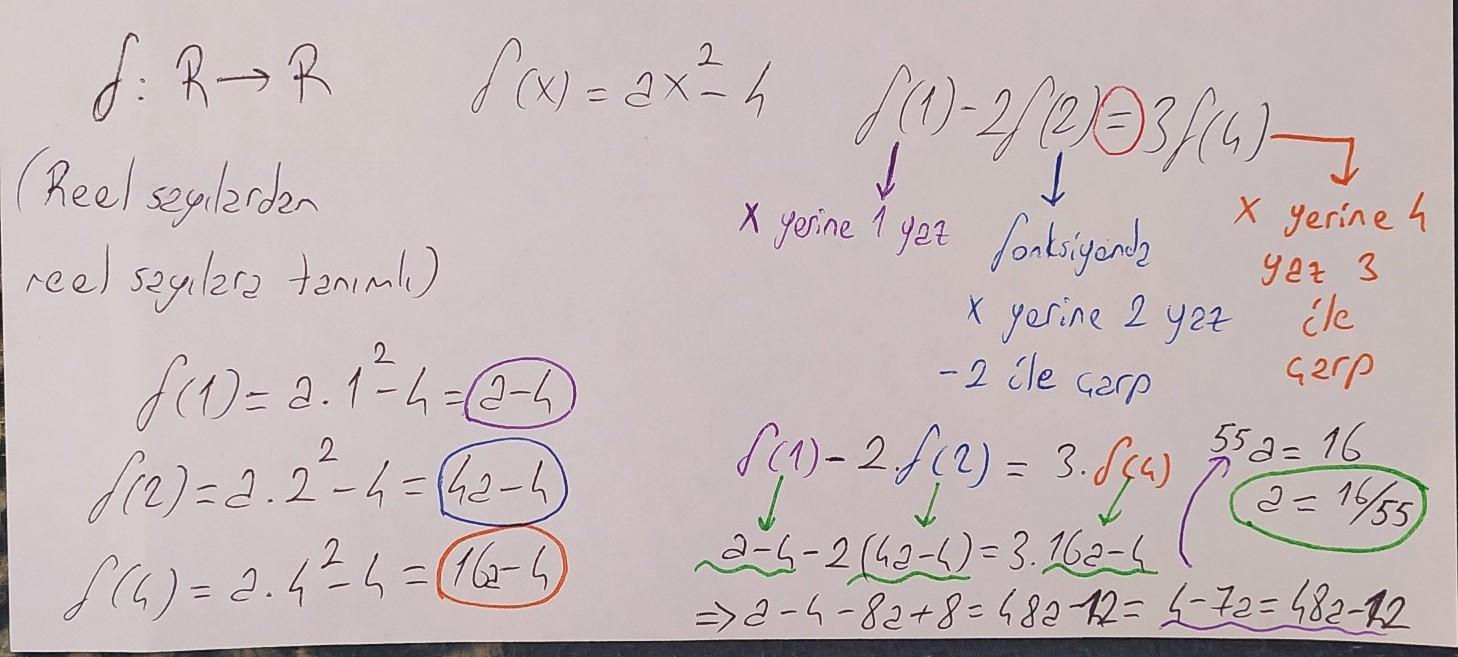 f: R→R
f(x) = ax²-4
f(1)-2f(2)=3f(4)
(Reel sayılardan
reel sayılara tanımlı)
x yerine 1 yaz
fonksiyonda
x yerine 2 yaz
-2 ile çarp
x yerine 4
yaz 3
ile
çarp
f(1)= a.1²-4 = a-4
f(2)= a.2²-4= 4a-4
f(4)= a.4²-4= 16a-4
f(1)-2.f(2) = 3.f(4)
a-4-2(4a-4)=3.16a-4
⇒ a-4-8a+8=48a-12= 4-7a=48a-12
55a=16
a= 16/55